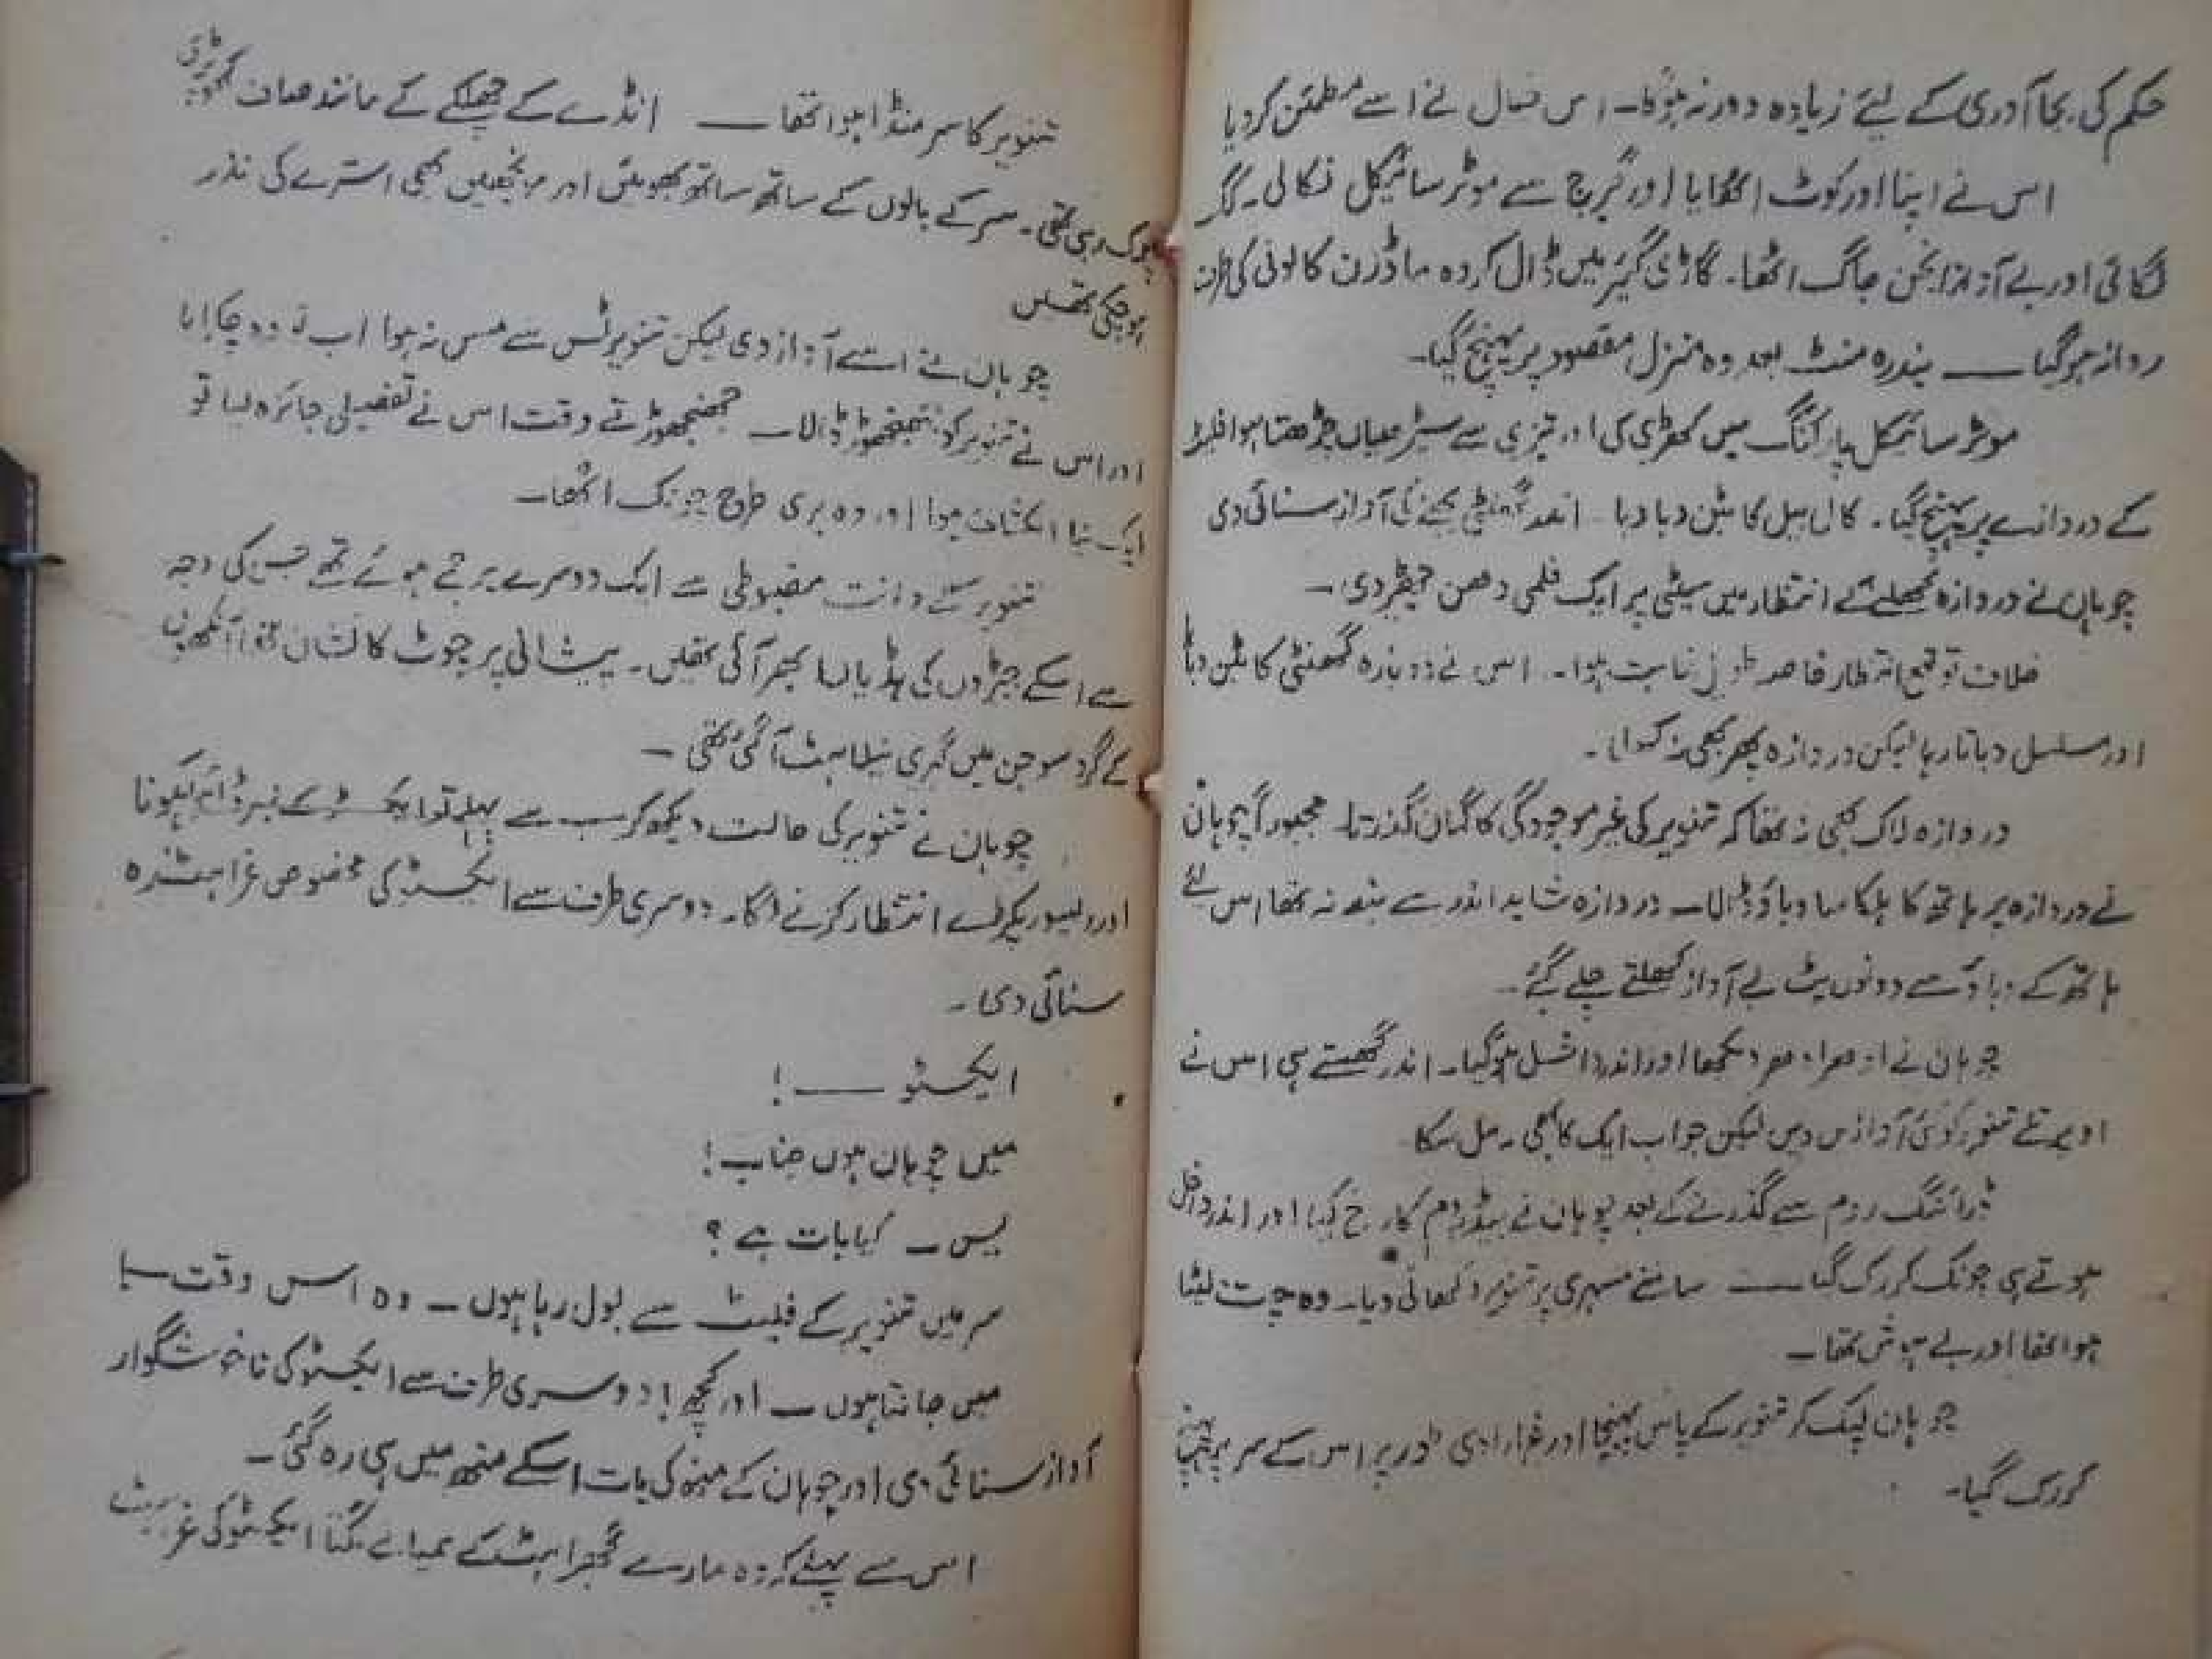 حکم کی بجا آوری کے لئے زیادہ دور نہ ہوگا۔ اس خیال نے اسے مطمئن کر دیا
اس نے اپنا اور کوٹ اٹھایا اور گیرج سے موٹر سائیکل نکالی۔ کک
لگائی اور بے آواز انجن جاگ اٹھا۔ گاڑی گیئر میں ڈال کر وہ ماڈرن کالونی کی طرف
روانہ ہوگیا ــــ پندرہ منٹ بعد وہ منزل مقصود پر پہنچ گیا۔
موٹر سائیکل پارکنگ میں کھڑی کی اور تیزی سے سیڑھیاں چڑھتا ہوا فلیٹ
کے دروازے پر پہنچ گیا۔ کال بیل کا بٹن دبا دیا۔ اندر گھنٹی بجنے کی آواز سنائی دی
چوہان نے دروازہ کھلنے کے انتظار میں سیٹی پر ایک فلمی دھن چھیڑ دی۔
خلاف توقع انتظار خاصہ طویل ثابت ہوا۔ اس نے دوبارہ گھنٹی کا بٹن دبایا
اور مسلسل دباتا رہا لیکن دروازہ پھر بھی نہ کھلا۔
دروازہ لاک بھی نہ تھا کہ تنویر کی غیر موجودگی کا گمان گذرتا۔ مجبوراً چوہان
نے دروازہ پر ہاتھ کا ہلکا سا دباؤ ڈالا۔ دروازہ شاید اندر سے بند نہ تھا اس لئے
ہاتھ کے دباؤ سے دونوں پٹ بے آواز کھلتے چلے گئے۔
چوہان نے ادھر ادھر دیکھا اور اندر داخل ہوگیا۔ اندر گھستے ہی اس نے
تنویر کو کئی آوازیں دیں لیکن جواب ایک کا بھی نہ مل سکا
ڈرائنگ روم سے گذرنے کے بعد چوہان نے بیڈ روم کا رخ کیا اور اندر داخل
ہوتے ہی چونک کر رک گیا ــــ سامنے مسہری پر تنویر دکھائی دیا۔ وہ چت لیٹا
ہوا تھا اور بے ہوش تھا۔
چوہان لپک کر تنویر کے پاس پہنچا اور غیر ارادی طور پر اس کے سر پر پہنچ
کر رک گیا۔
تنویر کا سر منڈا ہوا تھا ــــ انڈے کے چھلکے کے مانند صاف کھوپڑی
چمک رہی تھی۔ سر کے بالوں کے ساتھ ساتھ بھویں اور مونچھیں بھی استرے کی نذر
ہو چکی تھیں
چوہان نے اسے آواز دی لیکن تنویر ٹس سے مس نہ ہوا اب تو وہ چکرایا
اور اس نے تنویر کو جھنجھوڑ ڈالا۔ جھنجھوڑتے وقت اس نے تفصیلی جائزہ لیا تو
ایک نیا انکشاف ہوا اور وہ بری طرح چونک اٹھا۔
تنویر کے دانت مضبوطی سے ایک دوسرے پر جمے ہوئے تھے جس کی وجہ
سے اسکے جبڑوں کی ہڈیاں ابھر آئی تھیں۔ پیشانی پر چوٹ کا نشان تھا آنکھوں
کے گرد سوجن میں گہری نیلاہٹ آگئی تھی۔
چوہان نے تنویر کی حالت دیکھ کر سب سے پہلے تو ایکسٹو کے نمبر ڈائیل
اور ریسیور پکڑے انتظار کرنے لگا۔ دوسری طرف سے ایکسٹو کی مخصوص غراہٹ زدہ
سنائی دی۔
ایکسٹو ــــ !
میں چوہان ہوں جناب!
یس ۔ کیا بات ہے ؟
سر میں تنویر کے فلیٹ سے بول رہا ہوں ۔ وہ اس وقت
میں جانتا ہوں ۔ اور کچھ! دوسری طرف سے ایکسٹو کی ناخوشگوار
آواز سنائی دی اور چوہان کے منہ کی بات اسکے منھ میں ہی رہ گئی۔
اس سے پہلے کہ وہ مارے گھبراہٹ کے ایکسٹو کی